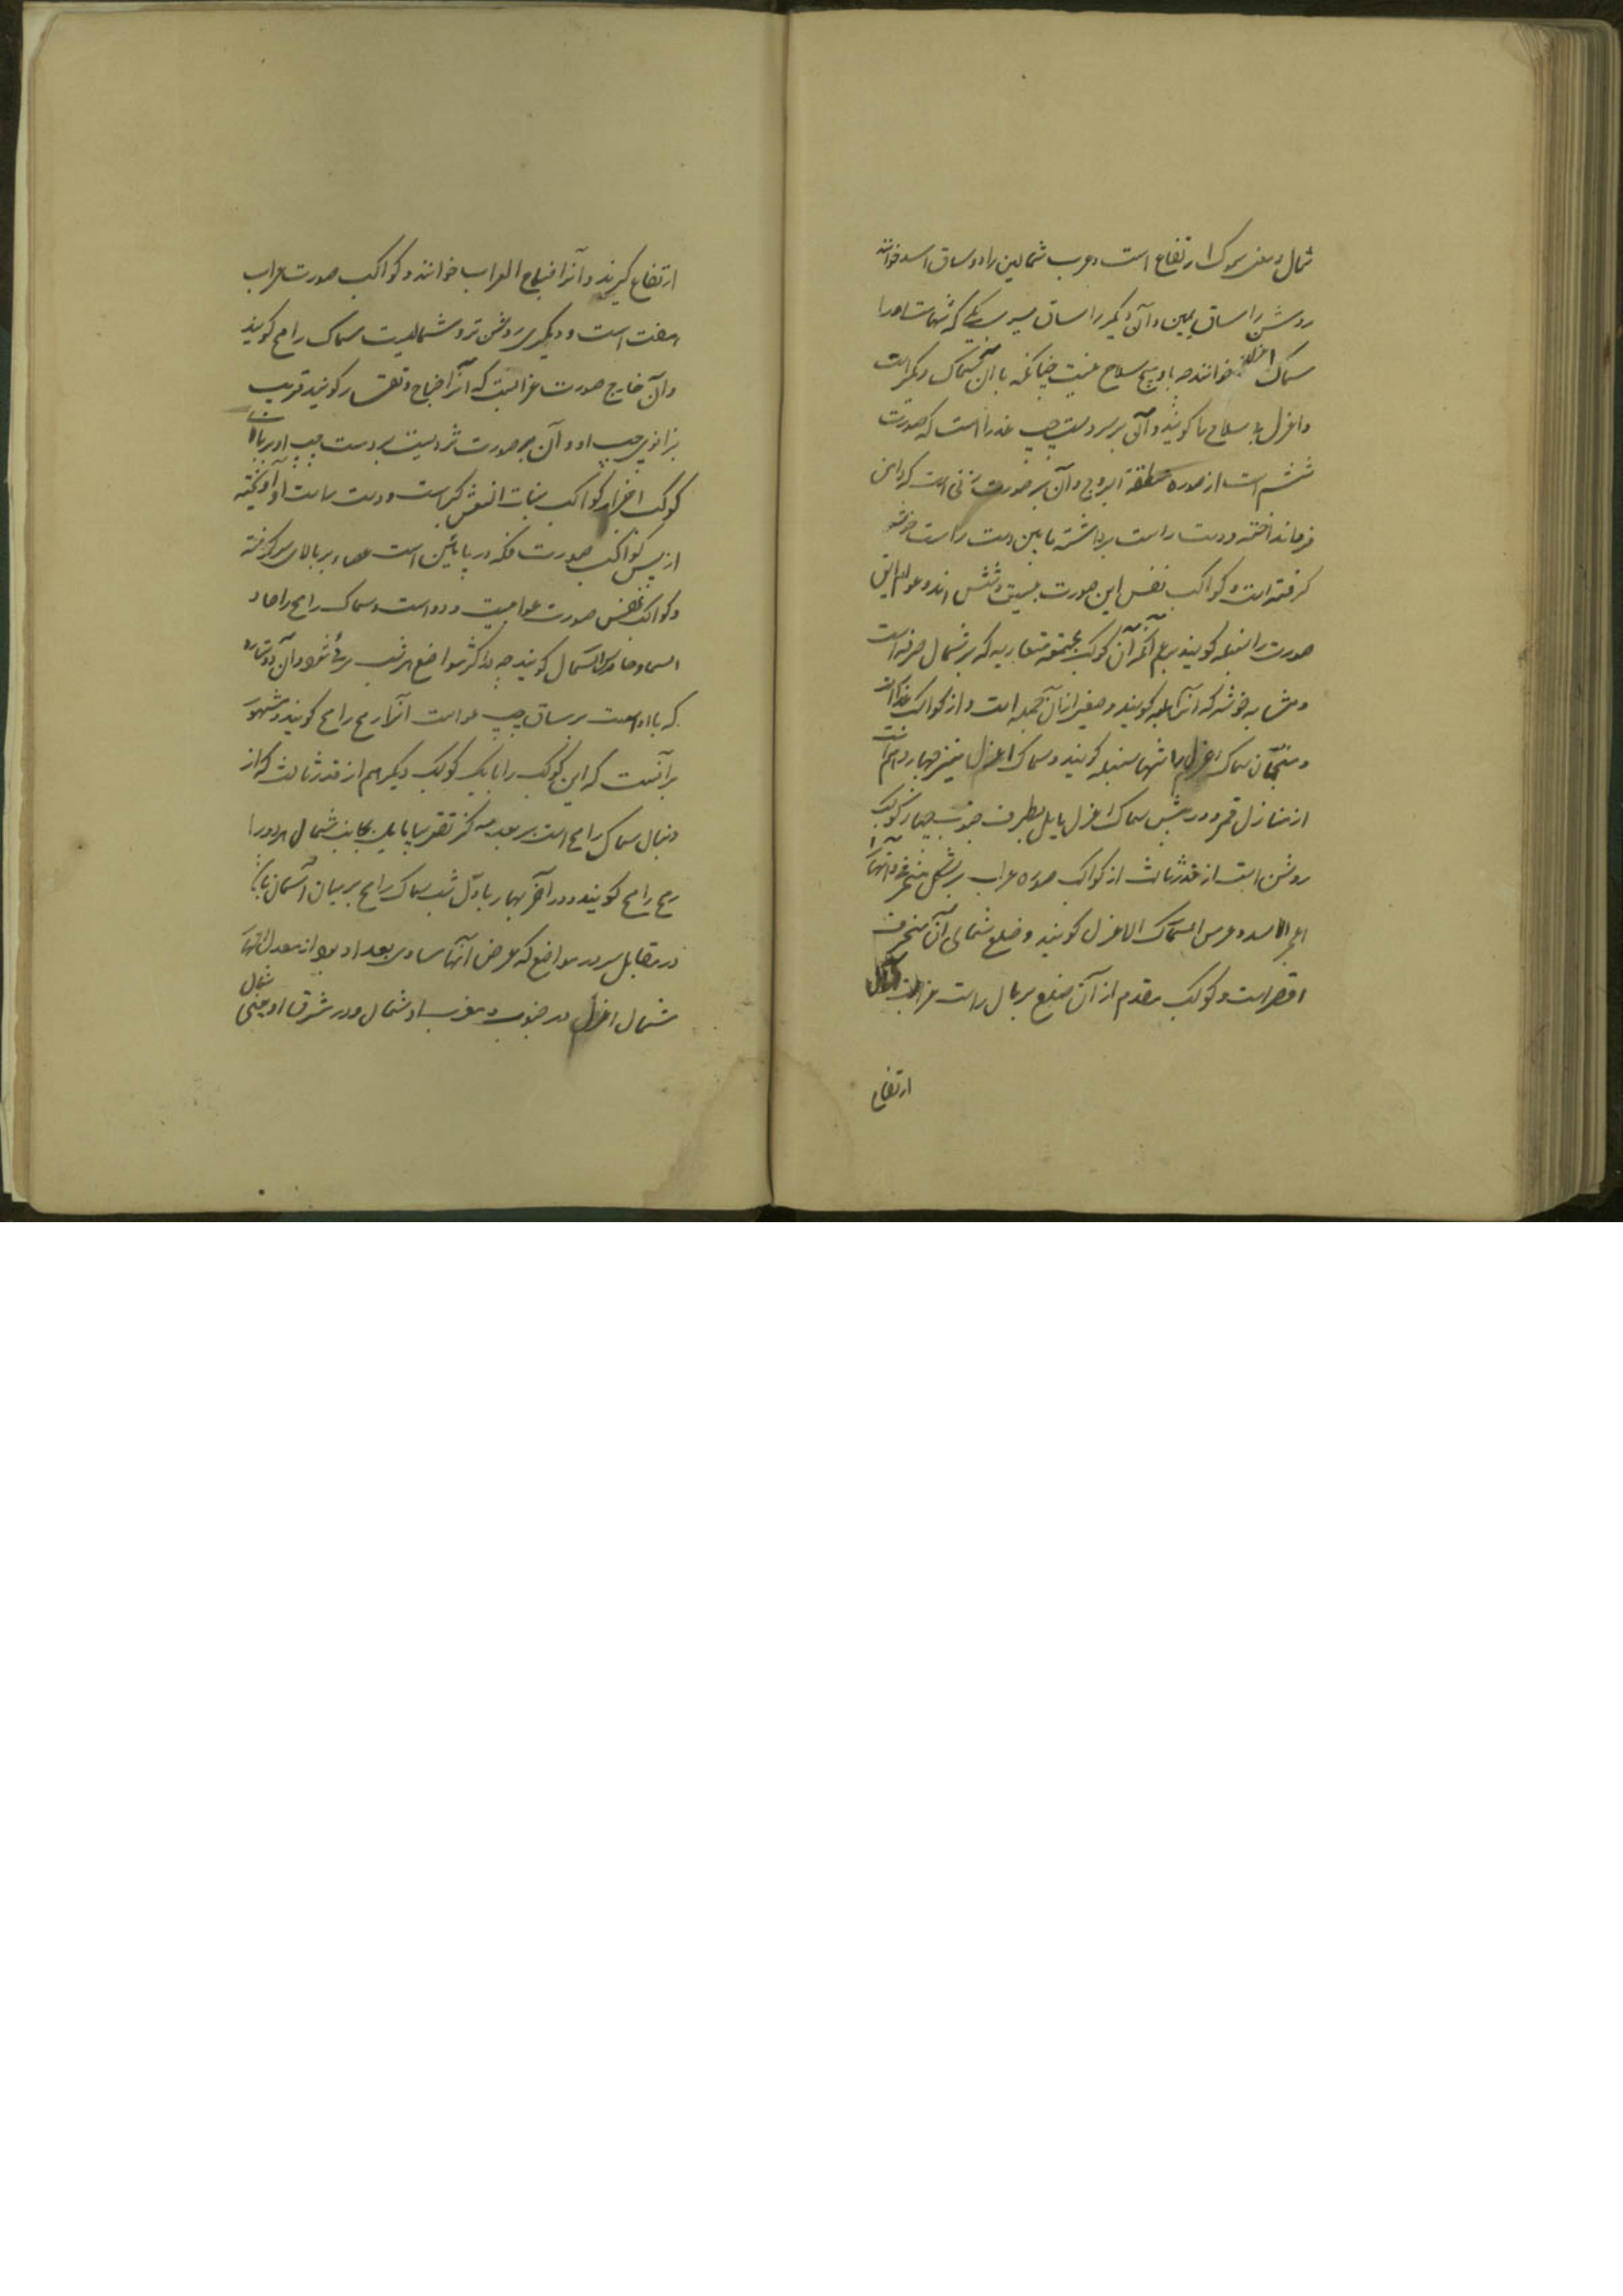 شمال و معنی سموک ارتفاع است و عرب شمالین را دو ساق اسد خوانند
روشن را ساق یمین و آن دیگر را ساق یسری یکی که تنهاست او را
سماک اعزل خوانند چه با او هیچ سلاح نیست چنانکه با آن سماک دیگر است
و اعزل بی سلاح را گویند و آن بر سر دست چپ عذرا است که صورت
ششم است از صوره منطقة البروج و آن بر صورت زنی است که دامن
فرمانداخته و دست راست برداشته بابین دست راست خوشه
گرفته است و کواکب نفس این صورت بیست و شش اند و عوام این
صورت را سنبله گویند و آن کوکب مجتمعه متقاربه که بر شمال صرفه است
و مشابه خوشه که آنرا هلبه گویند و ضفیره از آن جمله است و از کواکب
و منجمان سماک اعزل را تنها سنبله گویند و سماک اعزل منزل چهاردهم است
از منازل قمر و در پیش سماک اعزل مایل بطرف جنوب چهار کوکب
روشن است از قدر ثالث از کواکب صوره غراب بر شکل منحرف و آنها
عجز الاسد و عرش السماک الاعزل گویند و ضلع شمالی آن منحرف
اقصر است و کوکب مقدم از آن ضلع بر بال راست غراب است
ارتفاع
ارتفاع گیرند و آنرا جناح الغراب خوانند و کواکب صورت غراب
هفت است و دیگری روشن تر و شمالیست سماک رامح گویند
و آن خارج صورت عوا است که آنرا صیاح و بقار گویند قریب
بزانوی چپ او و آن بر صورت مردیست بر دست چپ او بر بالای
کوکب اخر از کواکب بنات النعش کبری است و دست راست او آویخته
از پس کواکب صورت فکه در پایین است عصا بر بالای سر گرفته
و کواکب نفس صورت عوا بیست و دو است و سماک رامح را حارس
السما و حارس الشمال گویند چه در اکثر مواضع هر شب مرئی شود و آن دو ستاره
که با او است بر ساق چپ عوا است آنرا رمح رامح گویند و مشهور
بر آنست که این کوکب را با یک کوکب دیگر هم از قدر ثالث که از
دنبال سماک رامح است بر بعد سه گز تقریبا مایل بجانب شمال هر دو را
رمح رامح گویند و در آخر بهار باول شب سماک رامح بر میان آسمان باشد
در مقابل سر در مواضع که عرض آنها مساوی بعد او بود از معدل النهار
شمال اعزل در جنوب و مغرب او شمال و در شرق او جنبی شمال